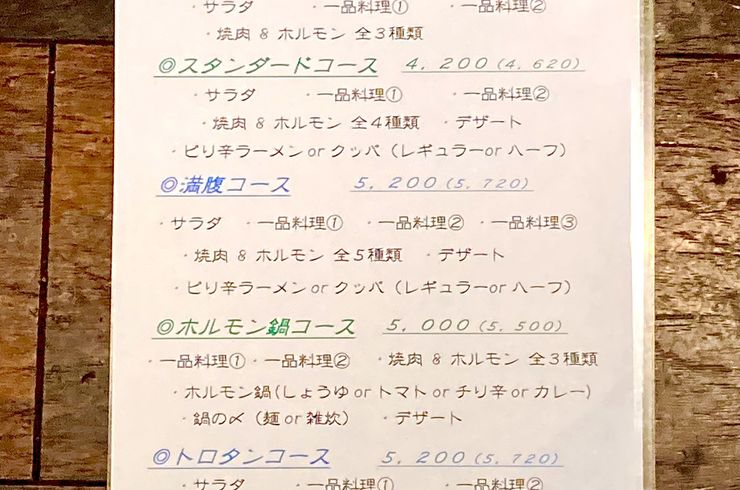 ・サラダ ・一品料理① ・一品料理②
・焼肉 & ホルモン 全3種類
◎スタンダードコース 4,200(4,620)
・サラダ ・一品料理① ・一品料理②
・焼肉 & ホルモン 全4種類 ・デザート
・ピリ辛ラーメンorクッパ(レギュラーorハーフ)
◎満腹コース 5,200(5,720)
・サラダ ・一品料理① ・一品料理② ・一品料理③
・焼肉 & ホルモン 全5種類 ・デザート
・ピリ辛ラーメンorクッパ(レギュラーorハーフ)
◎ホルモン鍋コース 5,000(5,500)
・一品料理①・一品料理② ・焼肉 & ホルモン 全3種類
・ホルモン鍋(しょうゆorトマトorチリ辛orカレー)
・鍋の〆(麺or雑炊) ・デザート
◎トロタンコース 5,200(5,720)
・サラダ ・一品料理① ・一品料理②